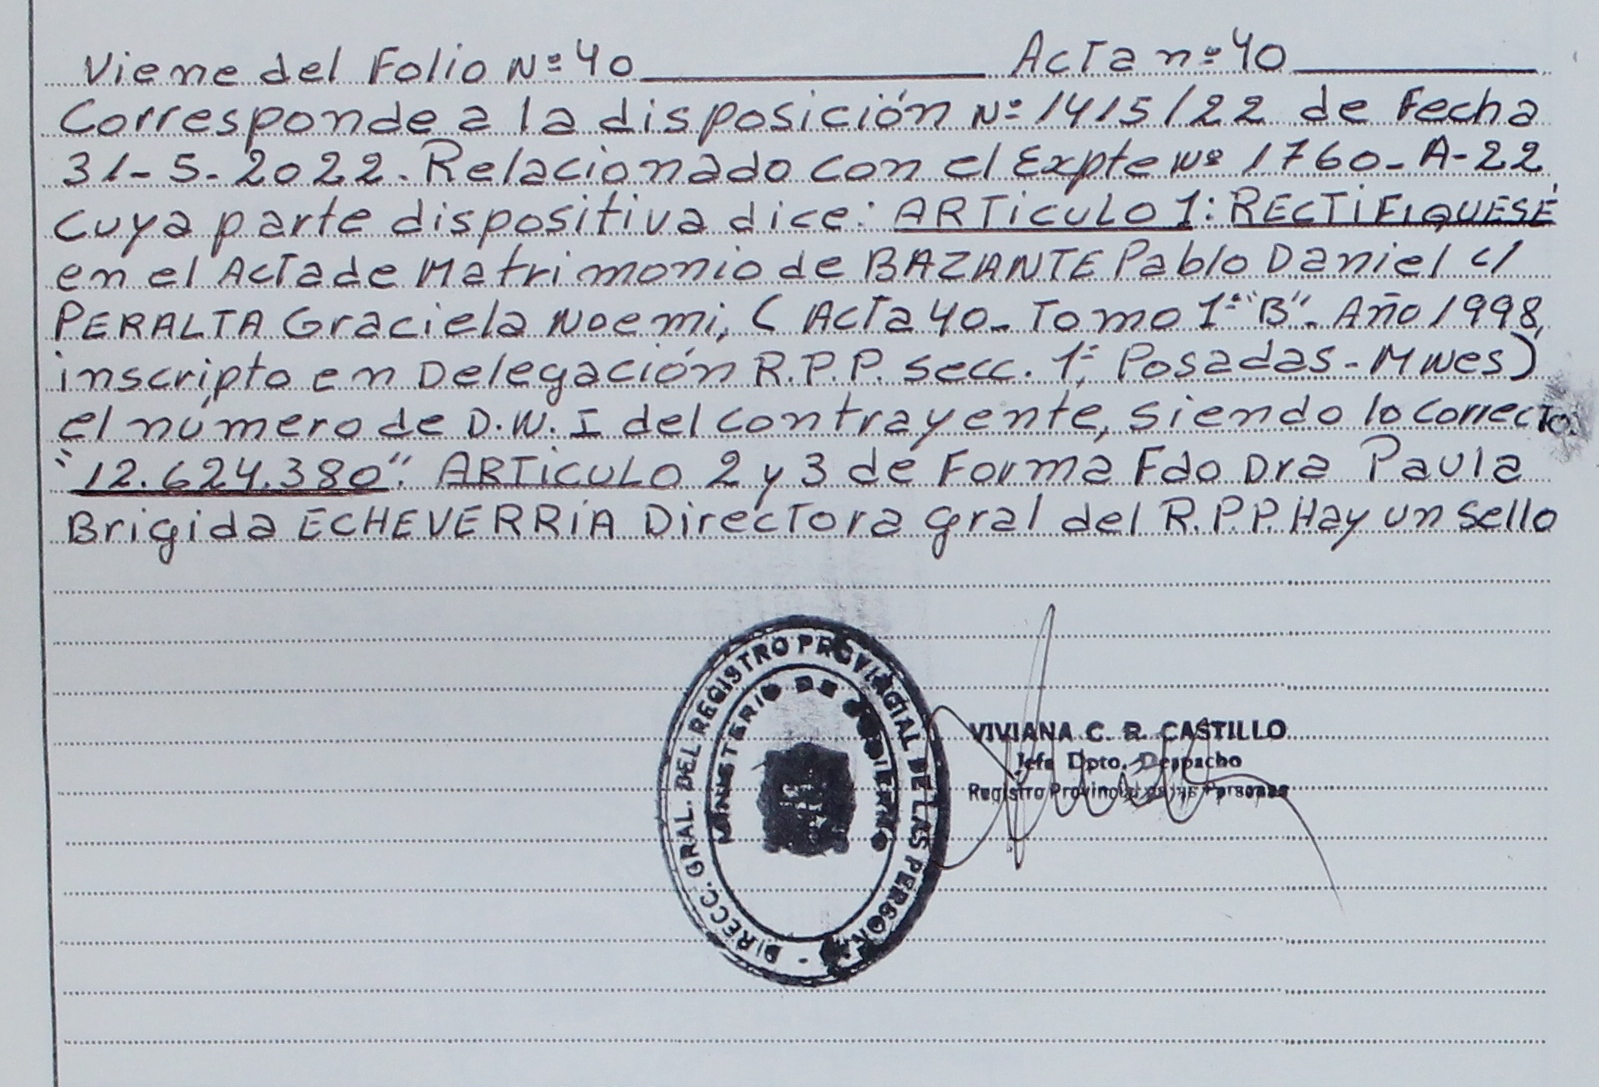 Viene del Folio Nº 40 Acta nº 40
Corresponde a la disposición Nº 1415/22 de Fecha
31-5-2022. Relacionado con el Expte Nº 1760-A-22
cuya parte dispositiva dice: ARTiCULO 1: RECTiFIQUESE
en el Acta de Matrimonio de BAZANTE Pablo Daniel c/
PERALTA Graciela Noemi, ( Acta 40- Tomo 1º "B". Año 1998,
inscripto en Delegación R.P.P. secc. 1ª, Posadas- MNes)
el número de D.N.I del contrayente, siendo lo correcto.
"12.624.380". ARTiCULO 2 y 3 de Forma Fdo Dra Paula
Brigida ECHEVERRíA Directora gral del R.P.P. Hay un sello
DIRECC. GRAL. DEL REGISTRO PROVINCIAL DE LAS PERSON.
MINISTERIO DE GOBIERNO
VIVIANA C. R. CASTILLO
Jefa Dpto. Despacho
Registro Provincial de las Personas